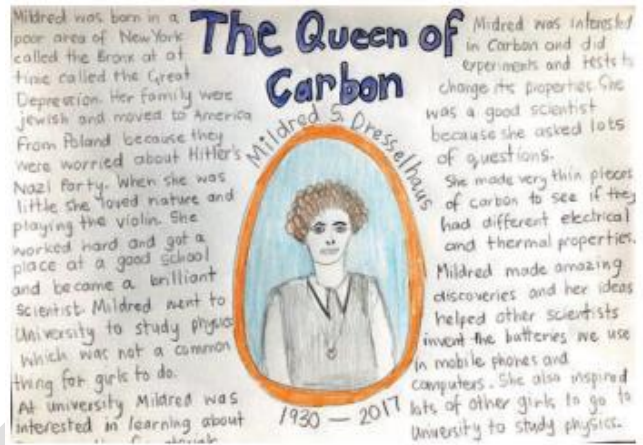 The Queen of
Carbon
Mildred S. Dresselhaus
Mildred was born in a
poor area of New York
called the Bronx at at
time called the Great
Depression. Her family were
jewish and moved to America
From Poland because they
were worried about Hitler's
Nazi Party. When she was
little she loved nature and
playing the violin. She
worked hard and got a
place at a good school
and became a brilliant
Scientist. Mildred went to
University to study physics
which was not a common
thing for girls to do.
At university Mildred was
interested in learning about
Mildred was interested
in Carbon and did
experiments and tests to
change its properties. She
was a good scientist
because she asked lots
of questions.
She made very thin pieces
of carbon to see if they
had different electrical
and thermal properties.
Mildred made amazing
discoveries and her ideas
helped other scientists
invent the batteries we use
in mobile phones and
computers. She also inspired
lots of other girls to go to
University to study physics.
1930 — 2017